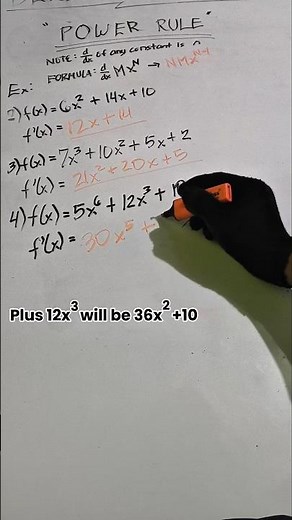 "POWER RULE"
NOTE: d/dx of any constant is 0
FORMULA: d/dx MX^N → NMX^N-1
Ex:
2) f(x) = 6x² + 14x + 10
f'(x) = 12x + 14
3) f(x) = 7x³ + 10x² + 5x + 2
f'(x) = 21x² + 20x + 5
4) f(x) = 5x⁶ + 12x³ + 1
f'(x) = 30x⁵ +
Plus 12x³ will be 36x² +10